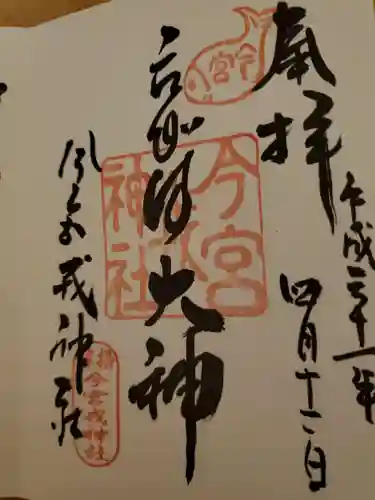 奉拝
平成三十一年
四月十二日
大神
戎神社
今宮
今宮
神社
今宮戎神社